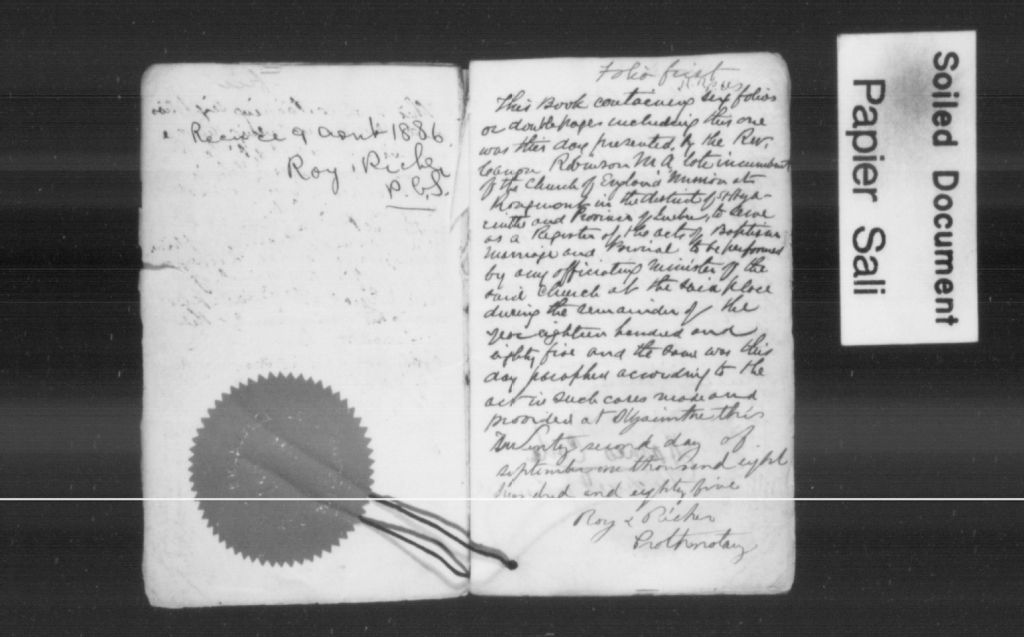 Received 9 Aout 1886
Roy & Richer
P.C.S.
Folio first
This Book containing six folios
or double pages including this one
was this day presented by the Rev.
Canon Robinson M A late incumbent
of the Church of England Mission at
in the district of St Hya-
cinthe and Province of Quebec, to serve
as a Register of the acts of Baptism
Marriage and Burial to be performed
by any officiating Minister of the
said Church at the said place
during the remainder of the
year eighteen hundred and
eighty five and the same was this
day paraphed according to the
act in such cases made and
provided at St Hyacinthe this
Twenty second day of
September one thousand eight
hundred and eighty five
Roy & Richer
Prothonotary
Soiled Document
Papier Sali